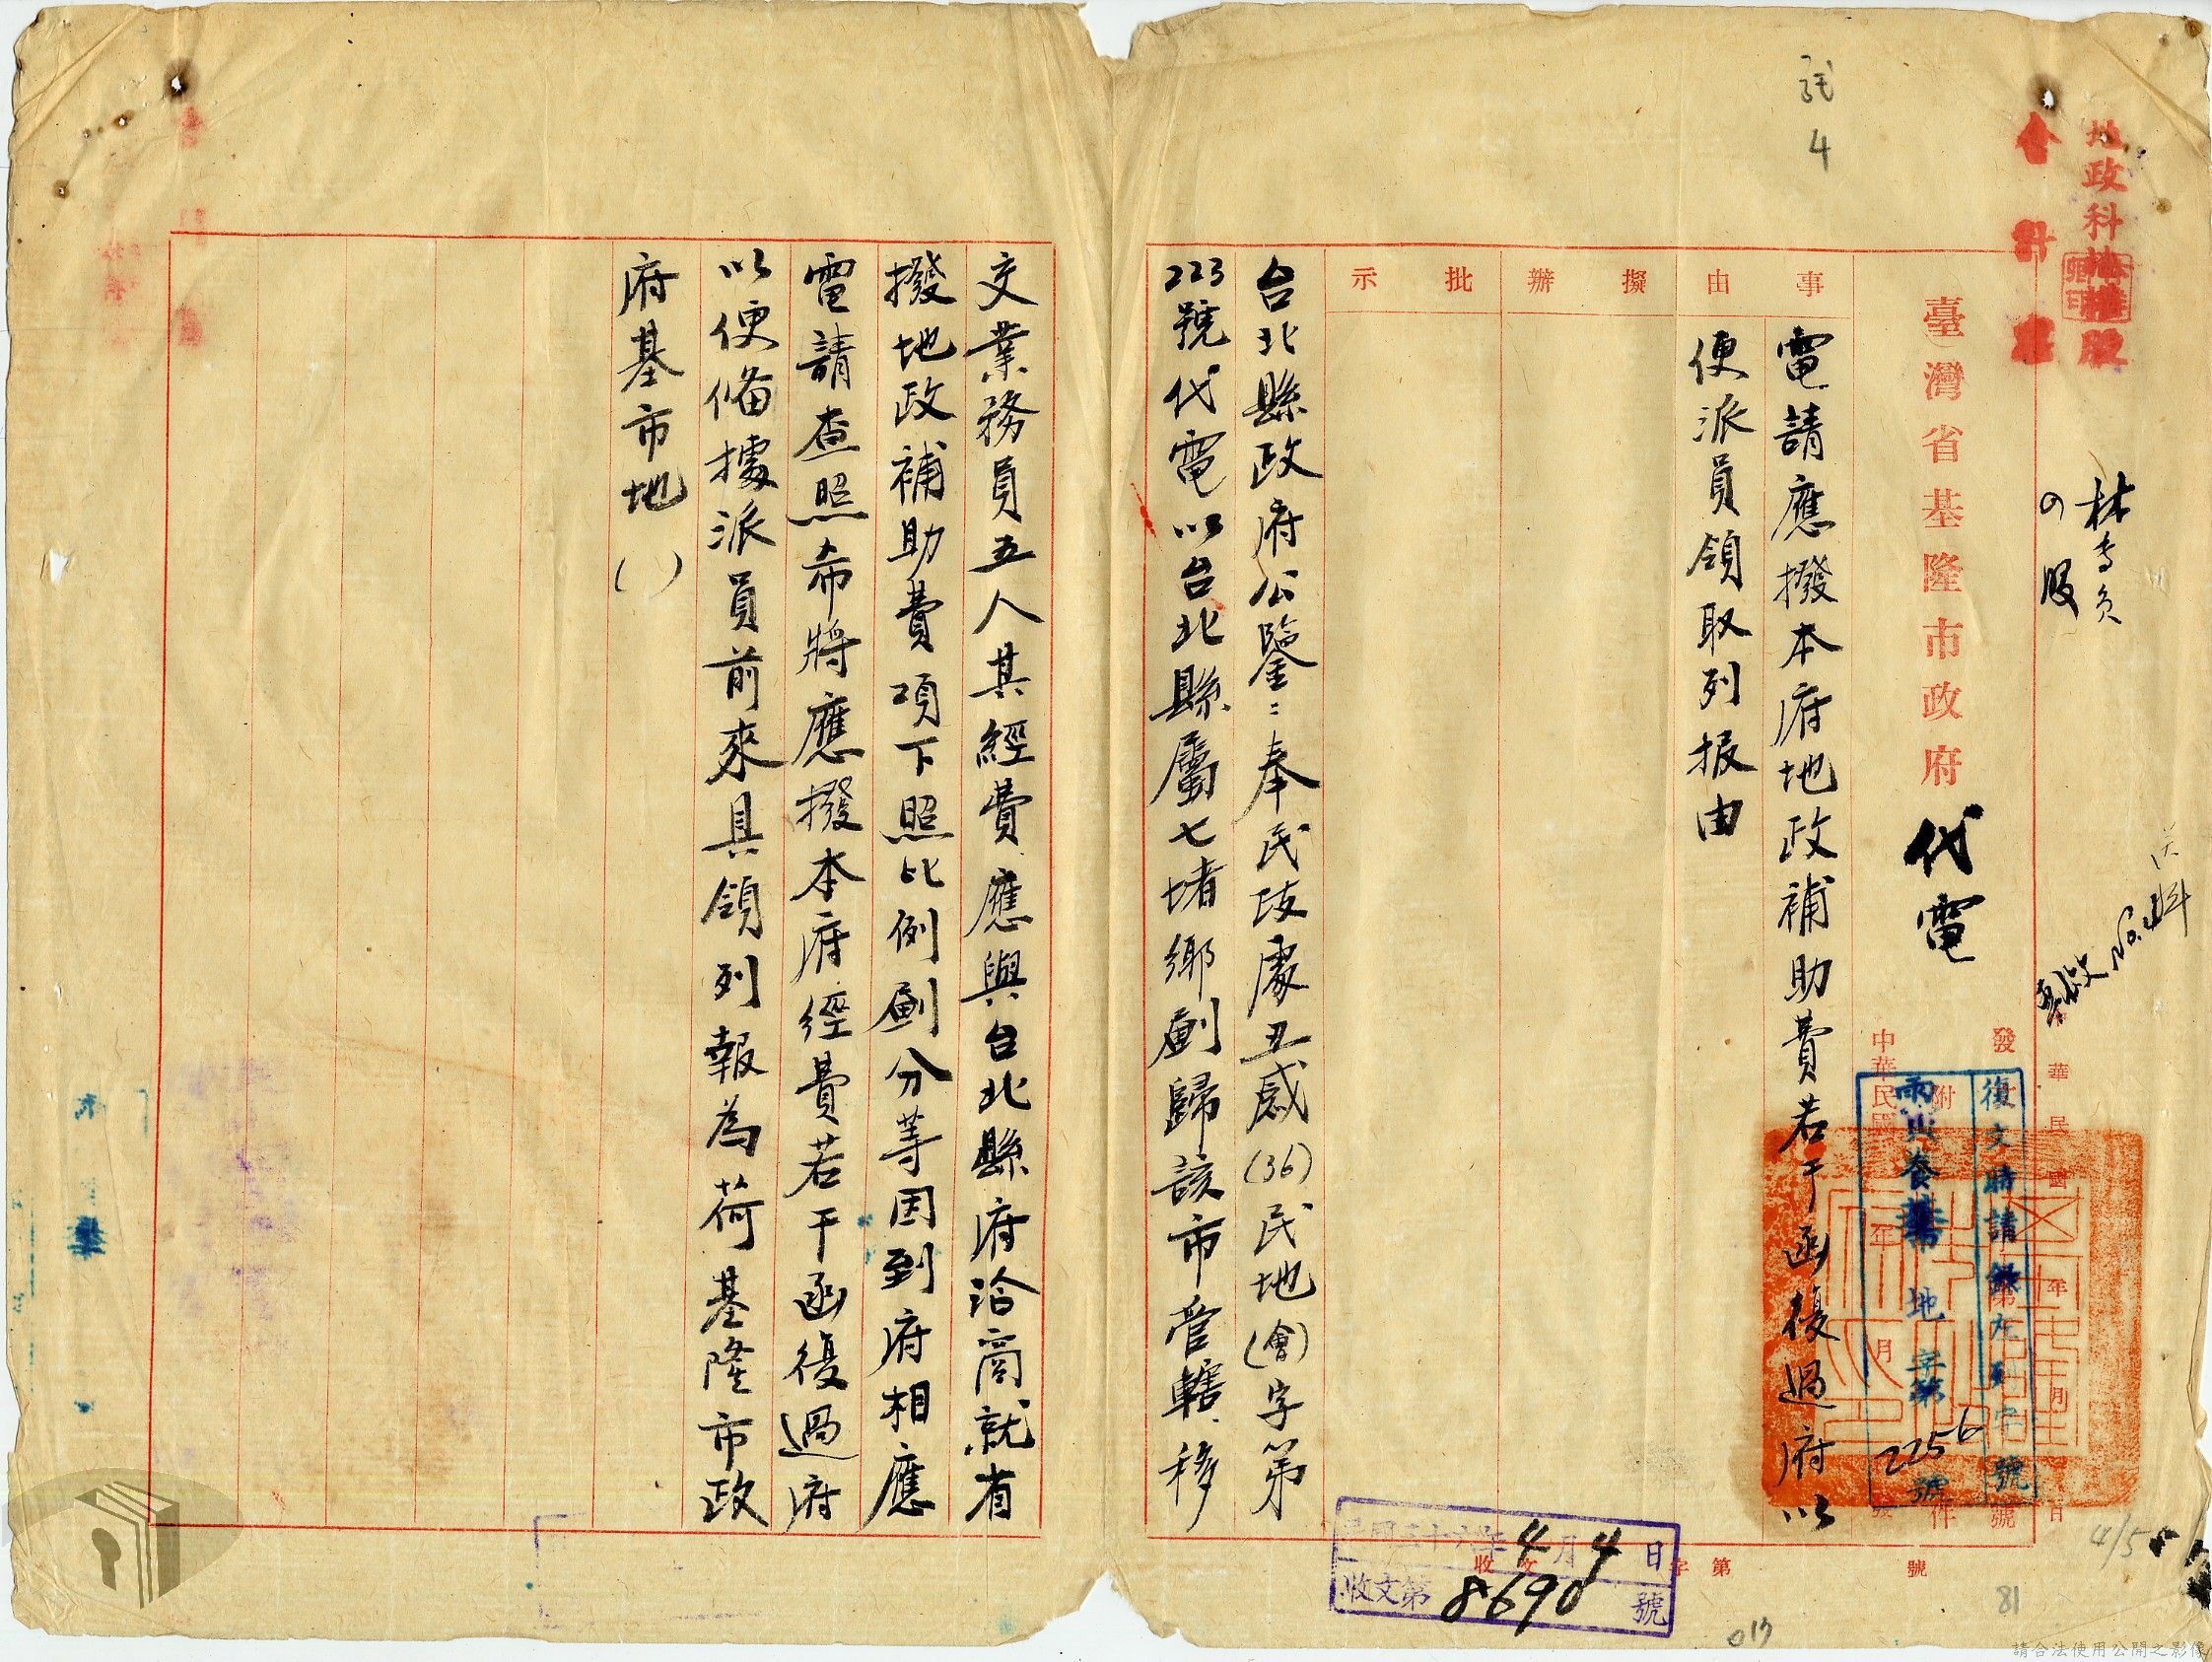 地政科地權股
會計室
林
股
4
臺灣省基隆市政府代電
事由
擬辦
批示
電請應撥本府地政補助費若干函復過府以
便派員領取列报由
復文時請錄左列字號
地字第2256號
民國三十六年4月4日
收文第8690號
收文字第號
台北縣政府公鑒:奉民政處丑感(36)民地(會)字第
223號代電以台北縣屬七堵鄉劃歸該市管轄移
交業務員五人其經費應與台北縣府洽商就省
撥地政補助費項下照比例劃分等因到府相應
電請查照希將應撥本府經費若干函復過府
以便俻據派員前來具領列報為荷基隆市政
府基市地( )
4/5
81
017
請合法使用公開之影像